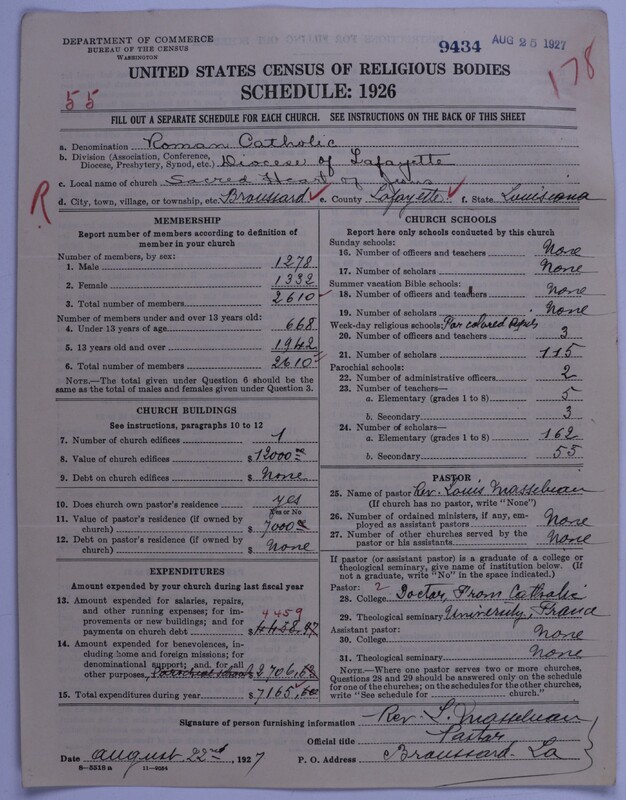 DEPARTMENT OF COMMERCE
BUREAU OF THE CENSUS
WASHINGTON
9434 AUG 25 1927
178
55
UNITED STATES CENSUS OF RELIGIOUS BODIES
SCHEDULE: 1926
FILL OUT A SEPARATE SCHEDULE FOR EACH CHURCH. SEE INSTRUCTIONS ON THE BACK OF THIS SHEET
a. Denomination Roman Catholic
b. Division (Association, Conference, Diocese, Presbytery, Synod, etc.) Diocese of Lafayette
c. Local name of church Sacred Heart of Jesus
R
d. City, town, village, or township, etc. Broussard e. County Lafayette f. State Louisiana
MEMBERSHIP
Report number of members according to definition of
member in your church
Number of members, by sex:
1. Male 1278
2. Female 1332
3. Total number of members 2610
Number of members under and over 13 years old:
4. Under 13 years of age 668
5. 13 years old and over 1942
6. Total number of members 2610
NOTE.—The total given under Question 6 should be
same as the total of males and females given under Question 3.
CHURCH BUILDINGS
See instructions, paragraphs 10 to 12
7. Number of church edifices 1
8. Value of church edifices $12000 00
9. Debt on church edifices $ None
10. Does church own pastor's residence yes
Yes or No
11. Value of pastor's residence (if owned by
church) $ 7000 00
12. Debt on pastor's residence (if owned by
church) $ None
EXPENDITURES
Amount expended by your church during last fiscal year
13. Amount expended for salaries, repairs,
and other running expenses; for im-
provements or new buildings; and for 4459
payments on church debt $ 4458.97
14. Amount expended for benevolences,
including home and foreign missions; for
denominational support; and for all
other purposes, Parochial schools $2706.
15. Total expenditures during year $7165.
CHURCH SCHOOLS
Report here only schools conducted by this church
Sunday schools:
16. Number of officers and teachers None
17. Number of scholars None
Summer vacation Bible schools:
18. Number of officers and teachers None
19. Number of scholars None
Week-day religious schools: For colored
20. Number of officers and teachers 3
21. Number of scholars 115
Parochial schools:
22. Number of administrative officers 2
23. Number of teachers—
a. Elementary (grades 1 to 8) 5
b. Secondary 3
24. Number of scholars—
a. Elementary (grades 1 to 8) 162
b. Secondary 55
PASTOR
25. Name of pastor Rev. Louis Masselman
(If church has no pastor, write "None")
26. Number of ordained ministers, if any, em-
ployed as assistant pastors None
27. Number of other churches served by the
pastor or his assistants None
If pastor (or assistant pastor) is a graduate of a college or
theological seminary, give name of institution below. (If
not a graduate, write "No" in the space indicated.)
Pastor: 2
28. College Doctor, From Catholic
29. Theological seminary University, France
Assistant pastor:
30. College None
31. Theological seminary None
NOTE.—Where one pastor serves two or more churches,
Questions 28 and 29 should be answered only on the schedule
for one of the churches; on the schedules for the other churches,
write "See schedule for church."
Signature of person furnishing information Rev L. Masselman
Official title Pastor
Date August 22nd, 1927 P. O. Address Broussard La
8—5518a 11—9034